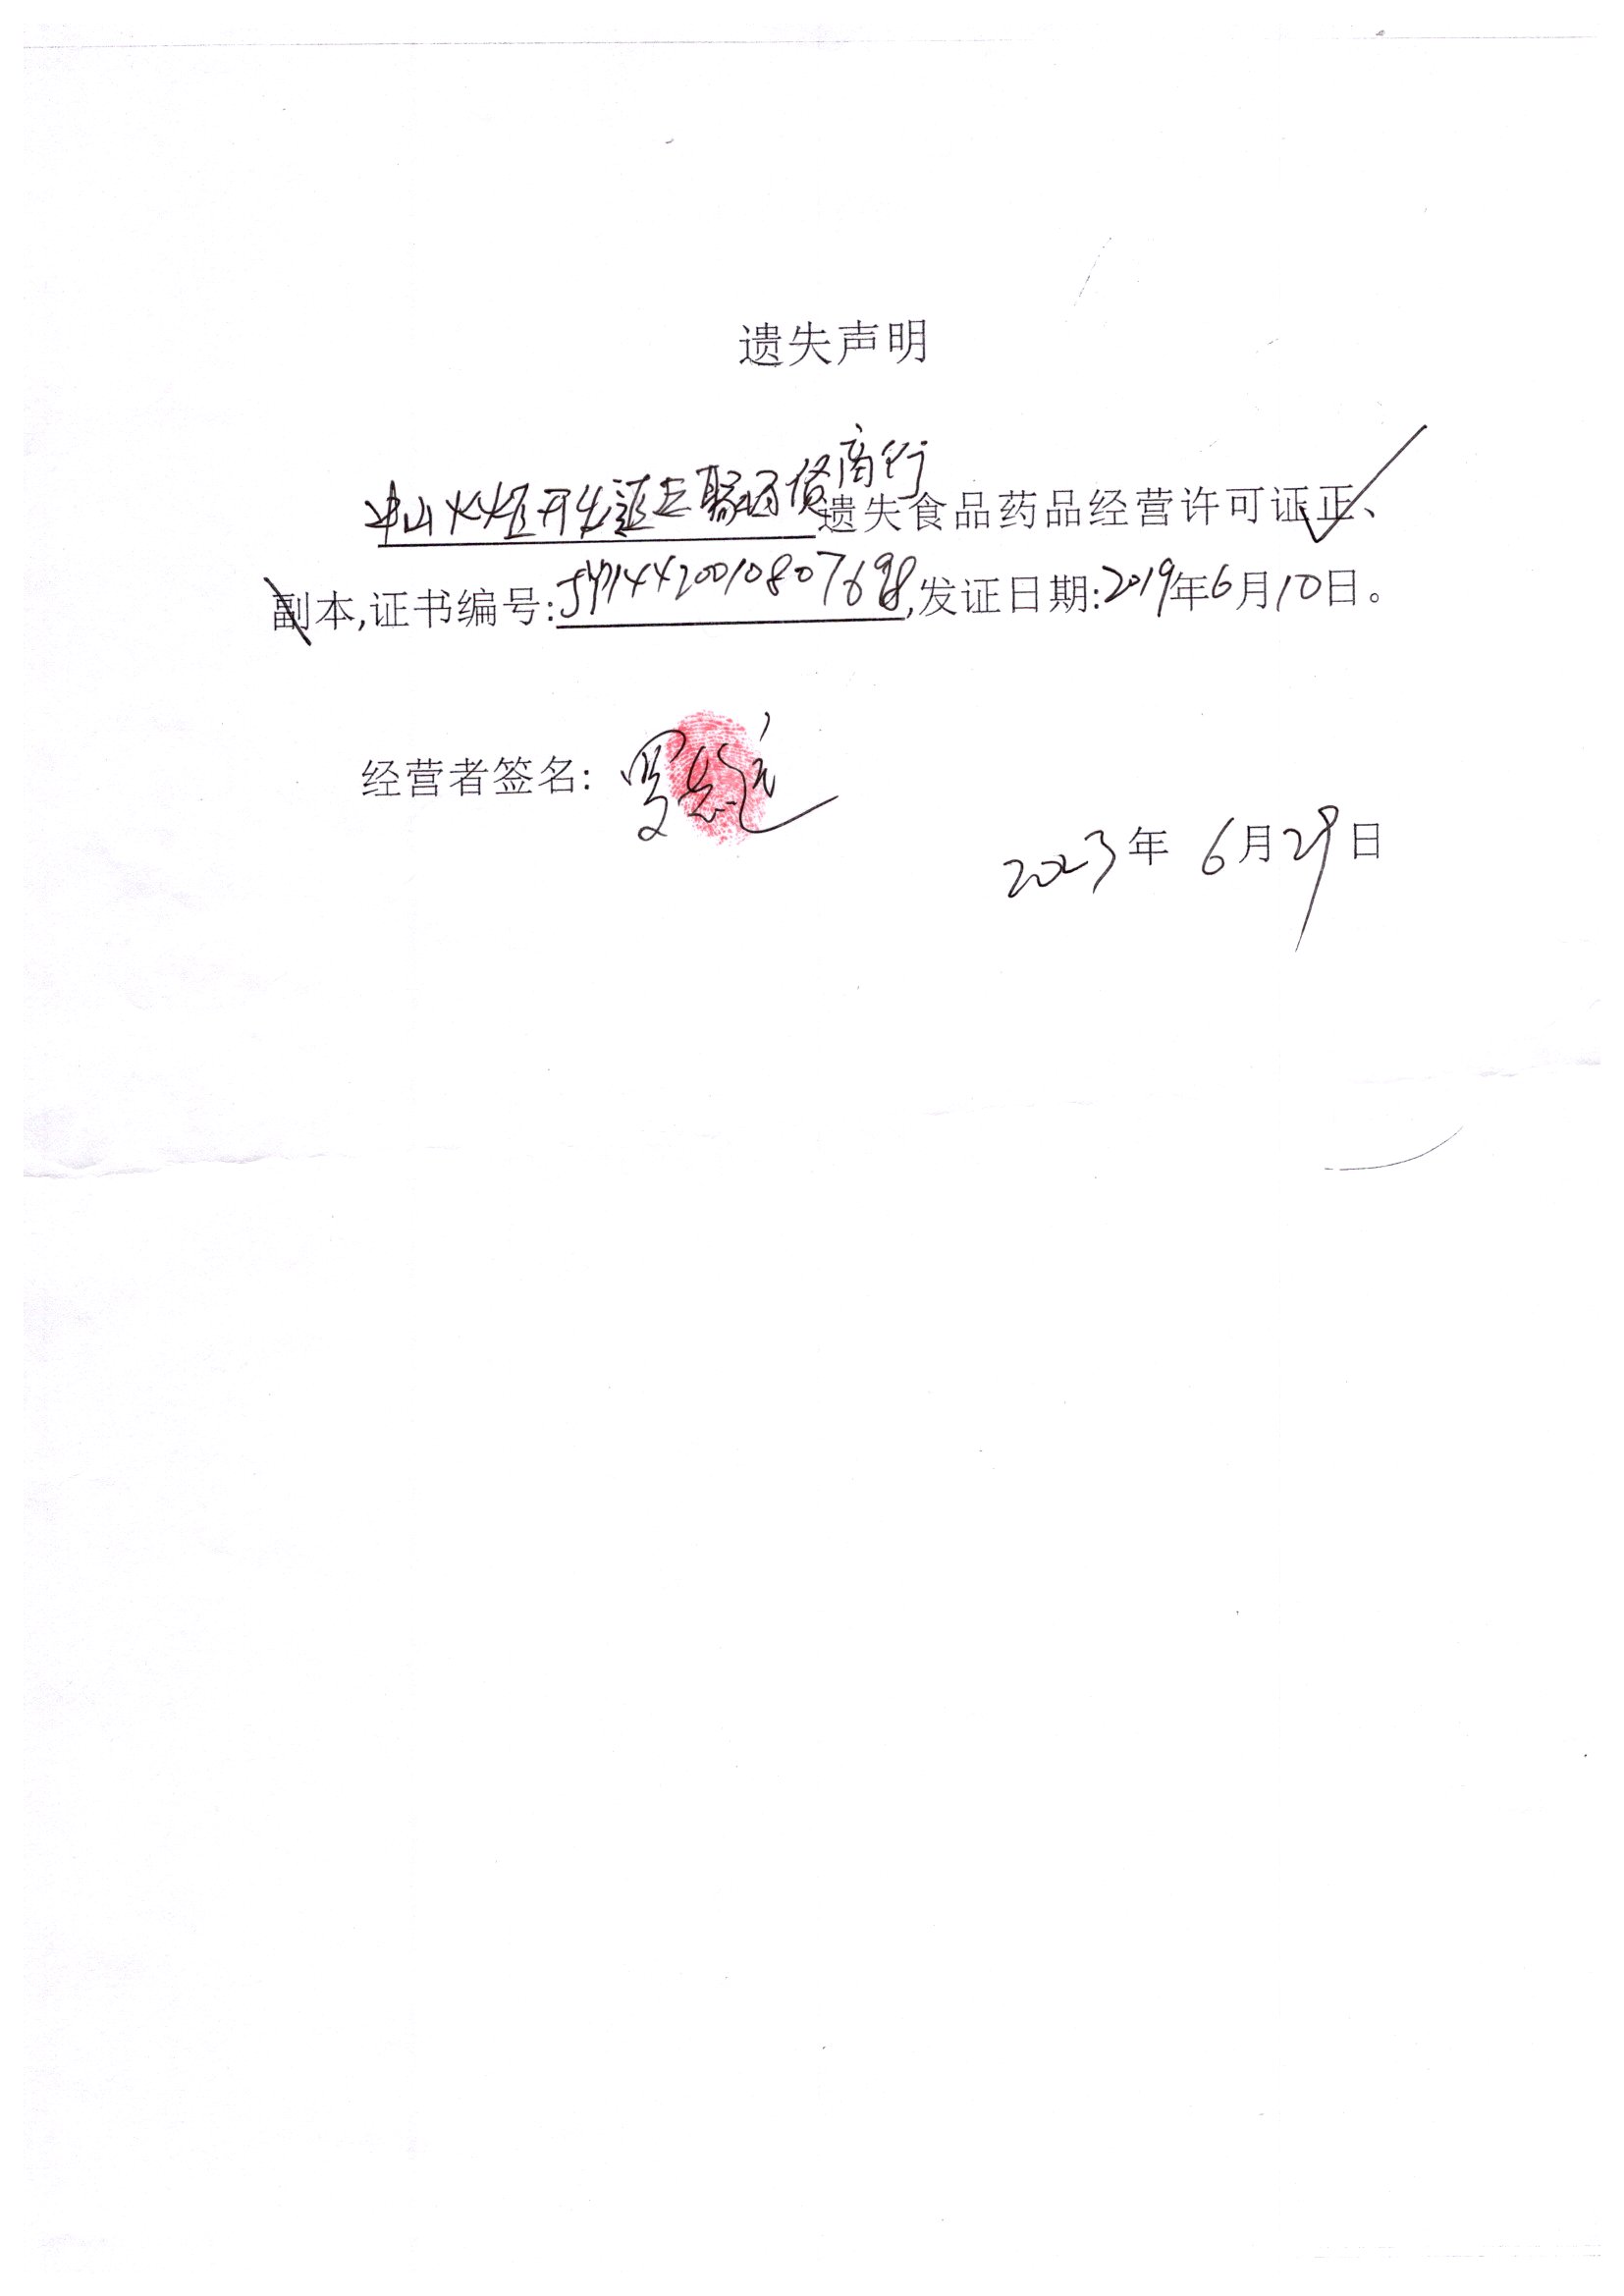 遗失声明
中山火炬开发区聚百俊商行遗失食品药品经营许可证正、
副本,证书编号:JY14420010807698,发证日期:2019年6月10日。
经营者签名:罗志
2023年 6月29日